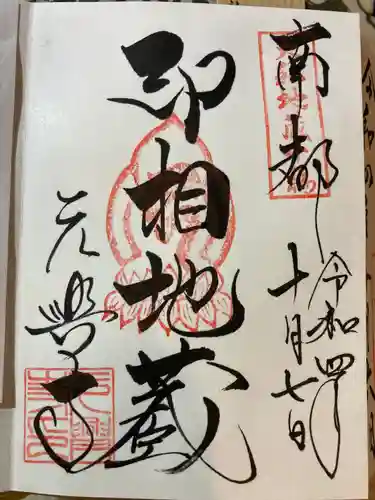 南都
令和四年
十月七日
印相地蔵
元興寺